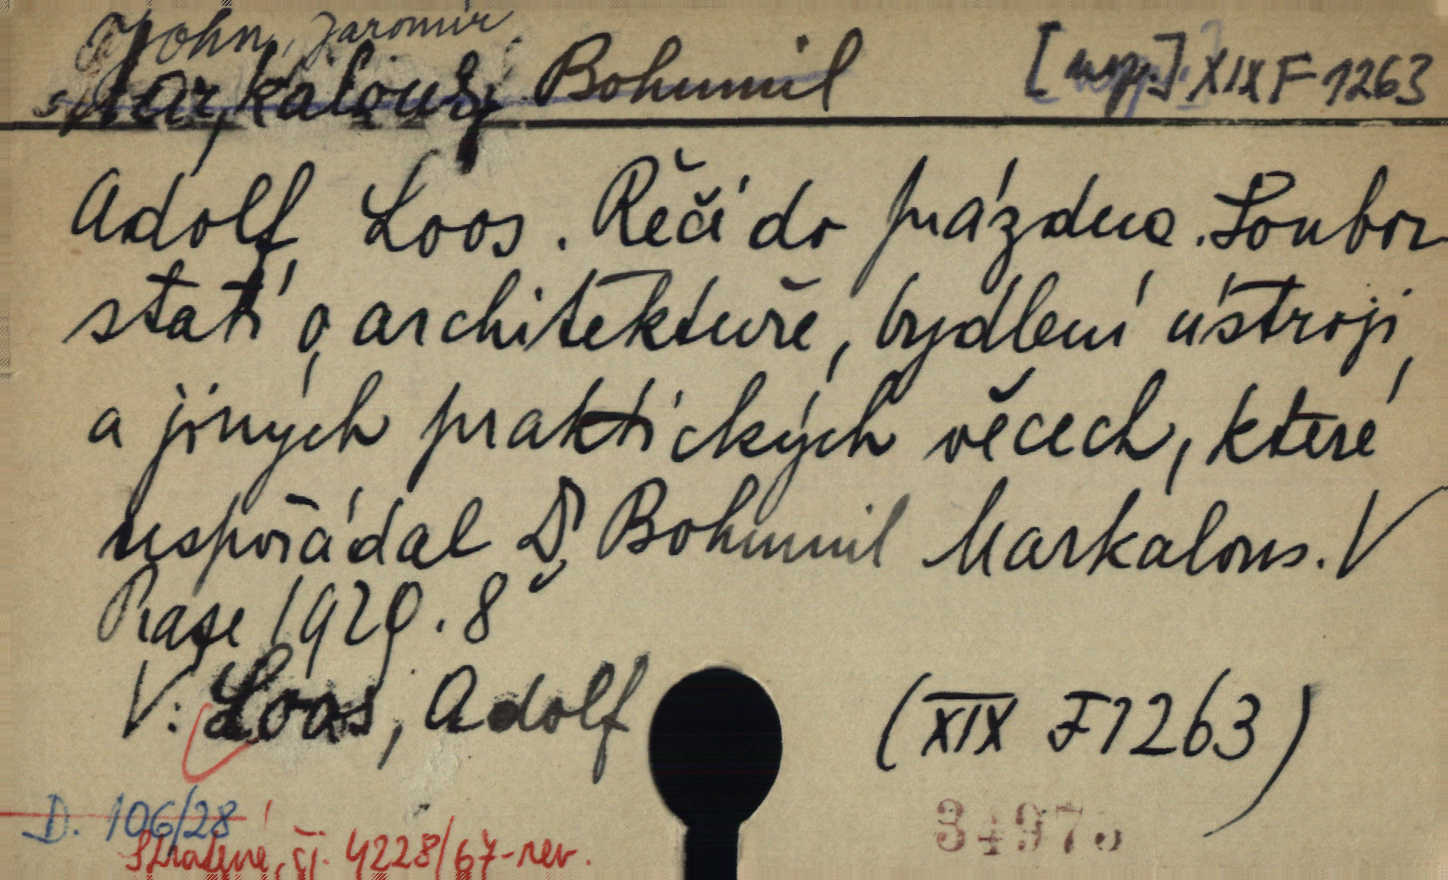 John, Jaromír
Markalous, Bohumil [usp.] XIX F 1263
Adolf Loos. Řeči do prázdna. Soubor
statí o architektuře, bydlení ústroji
a jiných praktických věcech, které
uspořádal Dr Bohumil Markalous. V
Praze 1929. 8°
V: Loos, Adolf (XIX F 1263)
D. 106/28 34975
Ztracené, čj. 4228/67-rev.